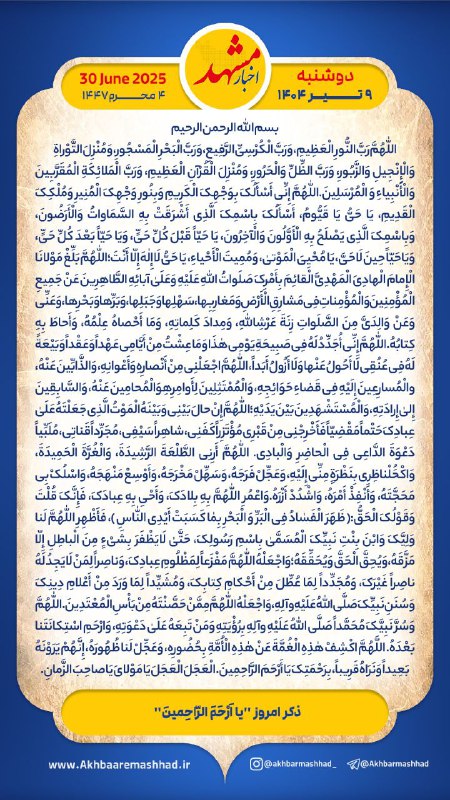 اخبار مشهد
دوشنبه
۹ تیر ۱۴۰۴
30 June 2025
۴ محرم ۱۴۴۷
بسم الله الرحمن الرحیم
اَللّٰهُمَّ رَبَّ النُّورِ الْعَظِیمِ، وَرَبَّ الْكُرْسِيِّ الرَّفِیعِ، وَرَبَّ الْبَحْرِ الْمَسْجُورِ، وَمُنْزِلَ التَّوْراةِ
وَالْإِنْجِیلِ وَالزَّبُورِ، وَرَبَّ الظِّلِّ وَالْحَرُورِ، وَمُنْزِلَ الْقُرْآنِ الْعَظِیمِ، وَرَبَّ الْمَلائِكَةِ الْمُقَرَّبِینَ
وَالْأَنْبِیاءِ وَالْمُرْسَلِینَ، اللّٰهُمَّ إِنِّی أَسْأَلُكَ بِوَجْهِكَ الْكَرِیمِ وَبِنُورِ وَجْهِكَ الْمُنِیرِ وَمُلْكِكَ
الْقَدِیمِ، یَا حَیُّ یَا قَیُّومُ، أَسْأَلُكَ بِاسْمِكَ الَّذِی أَشْرَقَتْ بِهِ السَّمَاوَاتُ وَالْأَرَضُونَ،
وَبِاسْمِكَ الَّذِی یَصْلَحُ بِهِ الْأَوَّلُونَ وَالْآخِرُونَ، یَا حَیّاً قَبْلَ كُلِّ حَیٍّ، وَیَا حَیّاً بَعْدَ كُلِّ حَیٍّ،
وَیَا حَیّاً حِینَ لَا حَیَّ، یَا مُحْیِیَ الْمَوْتیٰ، وَمُمِیتَ الْأَحْیاءِ، یَا حَیُّ لَا إِلٰهَ إِلّا أَنْتَ؛ اللّٰهُمَّ بَلِّغْ مَوْلانَا
الْإِمامَ الْهادِیَ الْمَهْدِیَّ الْقائِمَ بِأَمْرِكَ صَلَواتُ اللّٰهِ عَلَیْهِ وَعَلیٰ آبائِهِ الطَّاهِرِینَ عَنْ جَمِیعِ
الْمُؤْمِنِینَ وَالْمُؤْمِناتِ فِی مَشارِقِ الْأَرْضِ وَمَغارِبِها، سَهْلِها وَجَبَلِها، وَبَرِّها وَبَحْرِها، وَعَنِّی
وَعَنْ وَالِدَیَّ مِنَ الصَّلَواتِ زِنَةَ عَرْشِ اللّٰهِ، وَمِدادَ كَلِماتِهِ، وَمَا أَحْصاهُ عِلْمُهُ، وَأَحاطَ بِهِ
كِتابُهُ. اللّٰهُمَّ إِنِّی أُجَدِّدُ لَهُ فِی صَبِیحَةِ یَوْمِی هٰذَا وَمَا عِشْتُ مِنْ أَیَّامِی عَهْداً وَعَقْداً وَبَیْعَةً
لَهُ فِی عُنُقِی لَا أَحُولُ عَنْها وَلَا أَزُولُ أَبَداً، اللّٰهُمَّ اجْعَلْنِی مِنْ أَنْصارِهِ وَأَعْوانِهِ، وَالذَّابِّینَ عَنْهُ،
وَالْمُسارِعِینَ إِلَیْهِ فِی قَضاءِ حَوَائِجِهِ، وَالْمُمْتَثِلِینَ لِأَوامِرِهِ وَالْمُحامِینَ عَنْهُ، وَالسَّابِقِینَ
إِلیٰ إِرادَتِهِ، وَالْمُسْتَشْهَدِینَ بَیْنَ یَدَیْهِ؛ اللّٰهُمَّ إِنْ حالَ بَیْنِی وَبَیْنَهُ الْمَوْتُ الَّذِی جَعَلْتَهُ عَلیٰ
عِبادِكَ حَتْماً مَقْضِیّاً فَأَخْرِجْنِی مِنْ قَبْرِی مُؤْتَزِراً كَفَنِی، شاهِراً سَیْفِی، مُجَرِّداً قَناتِی، مُلَبِّیاً
دَعْوَةَ الدَّاعِی فِی الْحاضِرِ وَالْبادِی. اللّٰهُمَّ أَرِنِی الطَّلْعَةَ الرَّشِیدَةَ، وَالْغُرَّةَ الْحَمِیدَةَ،
وَاكْحُلْ ناظِرِی بِنَظْرَةٍ مِنِّی إِلَیْهِ، وَعَجِّلْ فَرَجَهُ، وَسَهِّلْ مَخْرَجَهُ، وَأَوْسِعْ مَنْهَجَهُ، وَاسْلُكْ بِی
مَحَجَّتَهُ، وَأَنْفِذْ أَمْرَهُ، وَاشْدُدْ أَزْرَهُ، وَاعْمُرِ اللّٰهُمَّ بِهِ بِلادَكَ، وَأَحْیِ بِهِ عِبادَكَ، فَإِنَّكَ قُلْتَ
وَقَوْلُكَ الْحَقُّ: ﴿ظَهَرَ الْفَسادُ فِی الْبَرِّ وَالْبَحْرِ بِمَا كَسَبَتْ أَیْدِی النَّاسِ﴾، فَأَظْهِرِ اللّٰهُمَّ لَنا
وَلِیَّكَ وَابْنَ بِنْتِ نَبِیِّكَ الْمُسَمَّیٰ بِاسْمِ رَسُولِكَ، حَتَّیٰ لَا یَظْفَرَ بِشَیْءٍ مِنَ الْباطِلِ إِلّا
مَزَّقَهُ، وَیُحِقَّ الْحَقَّ وَیُحَقِّقَهُ؛ وَاجْعَلْهُ اللّٰهُمَّ مَفْزَعاً لِمَظْلُومِ عِبادِكَ، وَناصِراً لِمَنْ لَا یَجِدُ لَهُ
ناصِراً غَیْرَكَ، وَمُجَدِّداً لِمَا عُطِّلَ مِنْ أَحْكامِ كِتابِكَ، وَمُشَیِّداً لِمَا وَرَدَ مِنْ أَعْلامِ دِینِكَ
وَسُنَنِ نَبِیِّكَ صَلَّی اللّٰهُ عَلَیْهِ وَآلِهِ، وَاجْعَلْهُ اللّٰهُمَّ مِمَّنْ حَصَّنْتَهُ مِنْ بَأْسِ الْمُعْتَدِینَ. اللّٰهُمَّ
وَسُرَّ نَبِیَّكَ مُحَمَّداً صَلَّی اللّٰهُ عَلَیْهِ وَآلِهِ بِرُؤْیَتِهِ وَمَنْ تَبِعَهُ عَلیٰ دَعْوَتِهِ، وَارْحَمِ اسْتِكانَتَنا
بَعْدَهُ. اللّٰهُمَّ اكْشِفْ هٰذِهِ الْغُمَّةَ عَنْ هٰذِهِ الْأُمَّةِ بِحُضُورِهِ، وَعَجِّلْ لَنا ظُهُورَهُ، إِنَّهُمْ یَرَوْنَهُ
بَعِیداً وَنَرَاهُ قَرِیباً، بِرَحْمَتِكَ یَا أَرْحَمَ الرَّاحِمِینَ. الْعَجَلَ الْعَجَلَ یَا مَوْلایَ یَا صاحِبَ الزَّمانِ.
ذکر امروز "یا اَرْحَمَ الرّاحِمینَ"
www.Akhbaaremashhad.ir
@akhbarmashhad_
@Akhbarmashhad